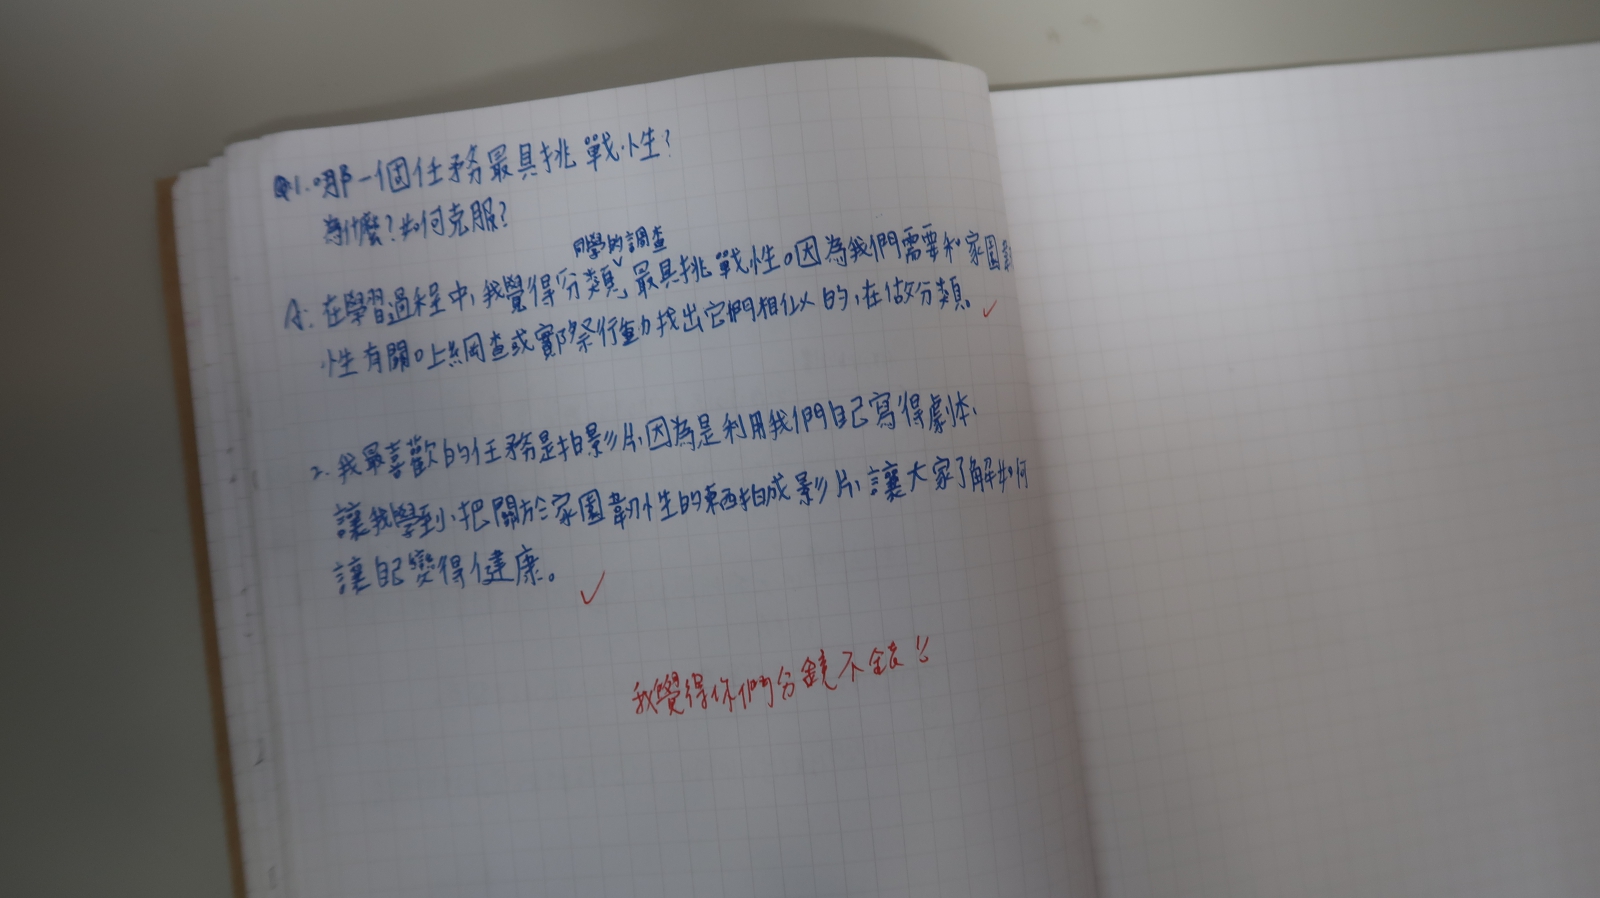 Q1.哪一個任務最具挑戰性?
為什麼?如何克服?
同學的調查
A:在學習過程中,我覺得分類,最具挑戰性。因為我們需要和家園韌
性有關。上網查或實際行動找出它們相似的,在做分類。
2.我最喜歡的任務是拍影片,因為是利用我們自己寫得劇本,
讓我學到,把關於家園韌性的東西拍成影片,讓大家了解如何
讓自己變得健康。
我覺得你們分鏡不錯!!